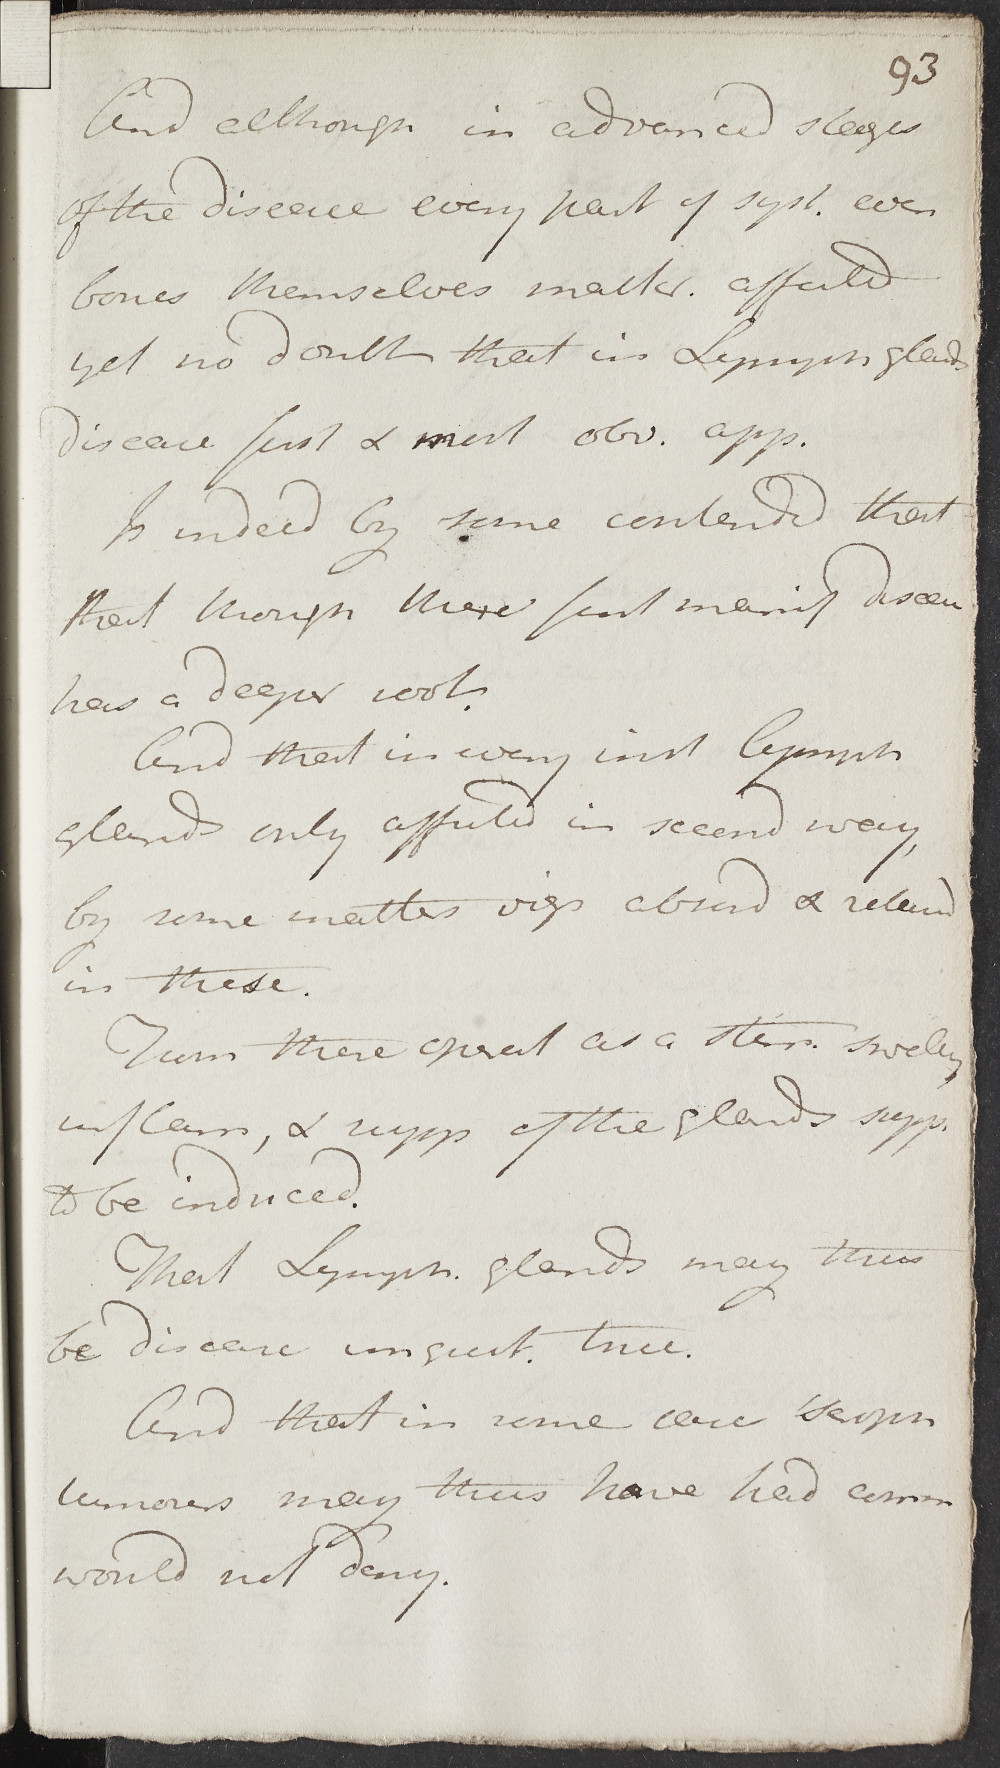 93
And although in advanced stages
of the disease every part of syst. even
bones themselves affected
yet no doubt that in Lymph glands
disease first & most obv. app.
Is indeed by some contended that
that though there first manif disease
has a deeper root.
And that in every inst lymph
glands only affected in second way,
by some matter absord & retaind
in these.
From there operat as a stim. swelling,
inflam, & supp of the glands supp.
to be induced.
That Lymph. glands may thus
be disease unquest. true.
And that in some case scroph
tumours may thus have had comm
would not deny.